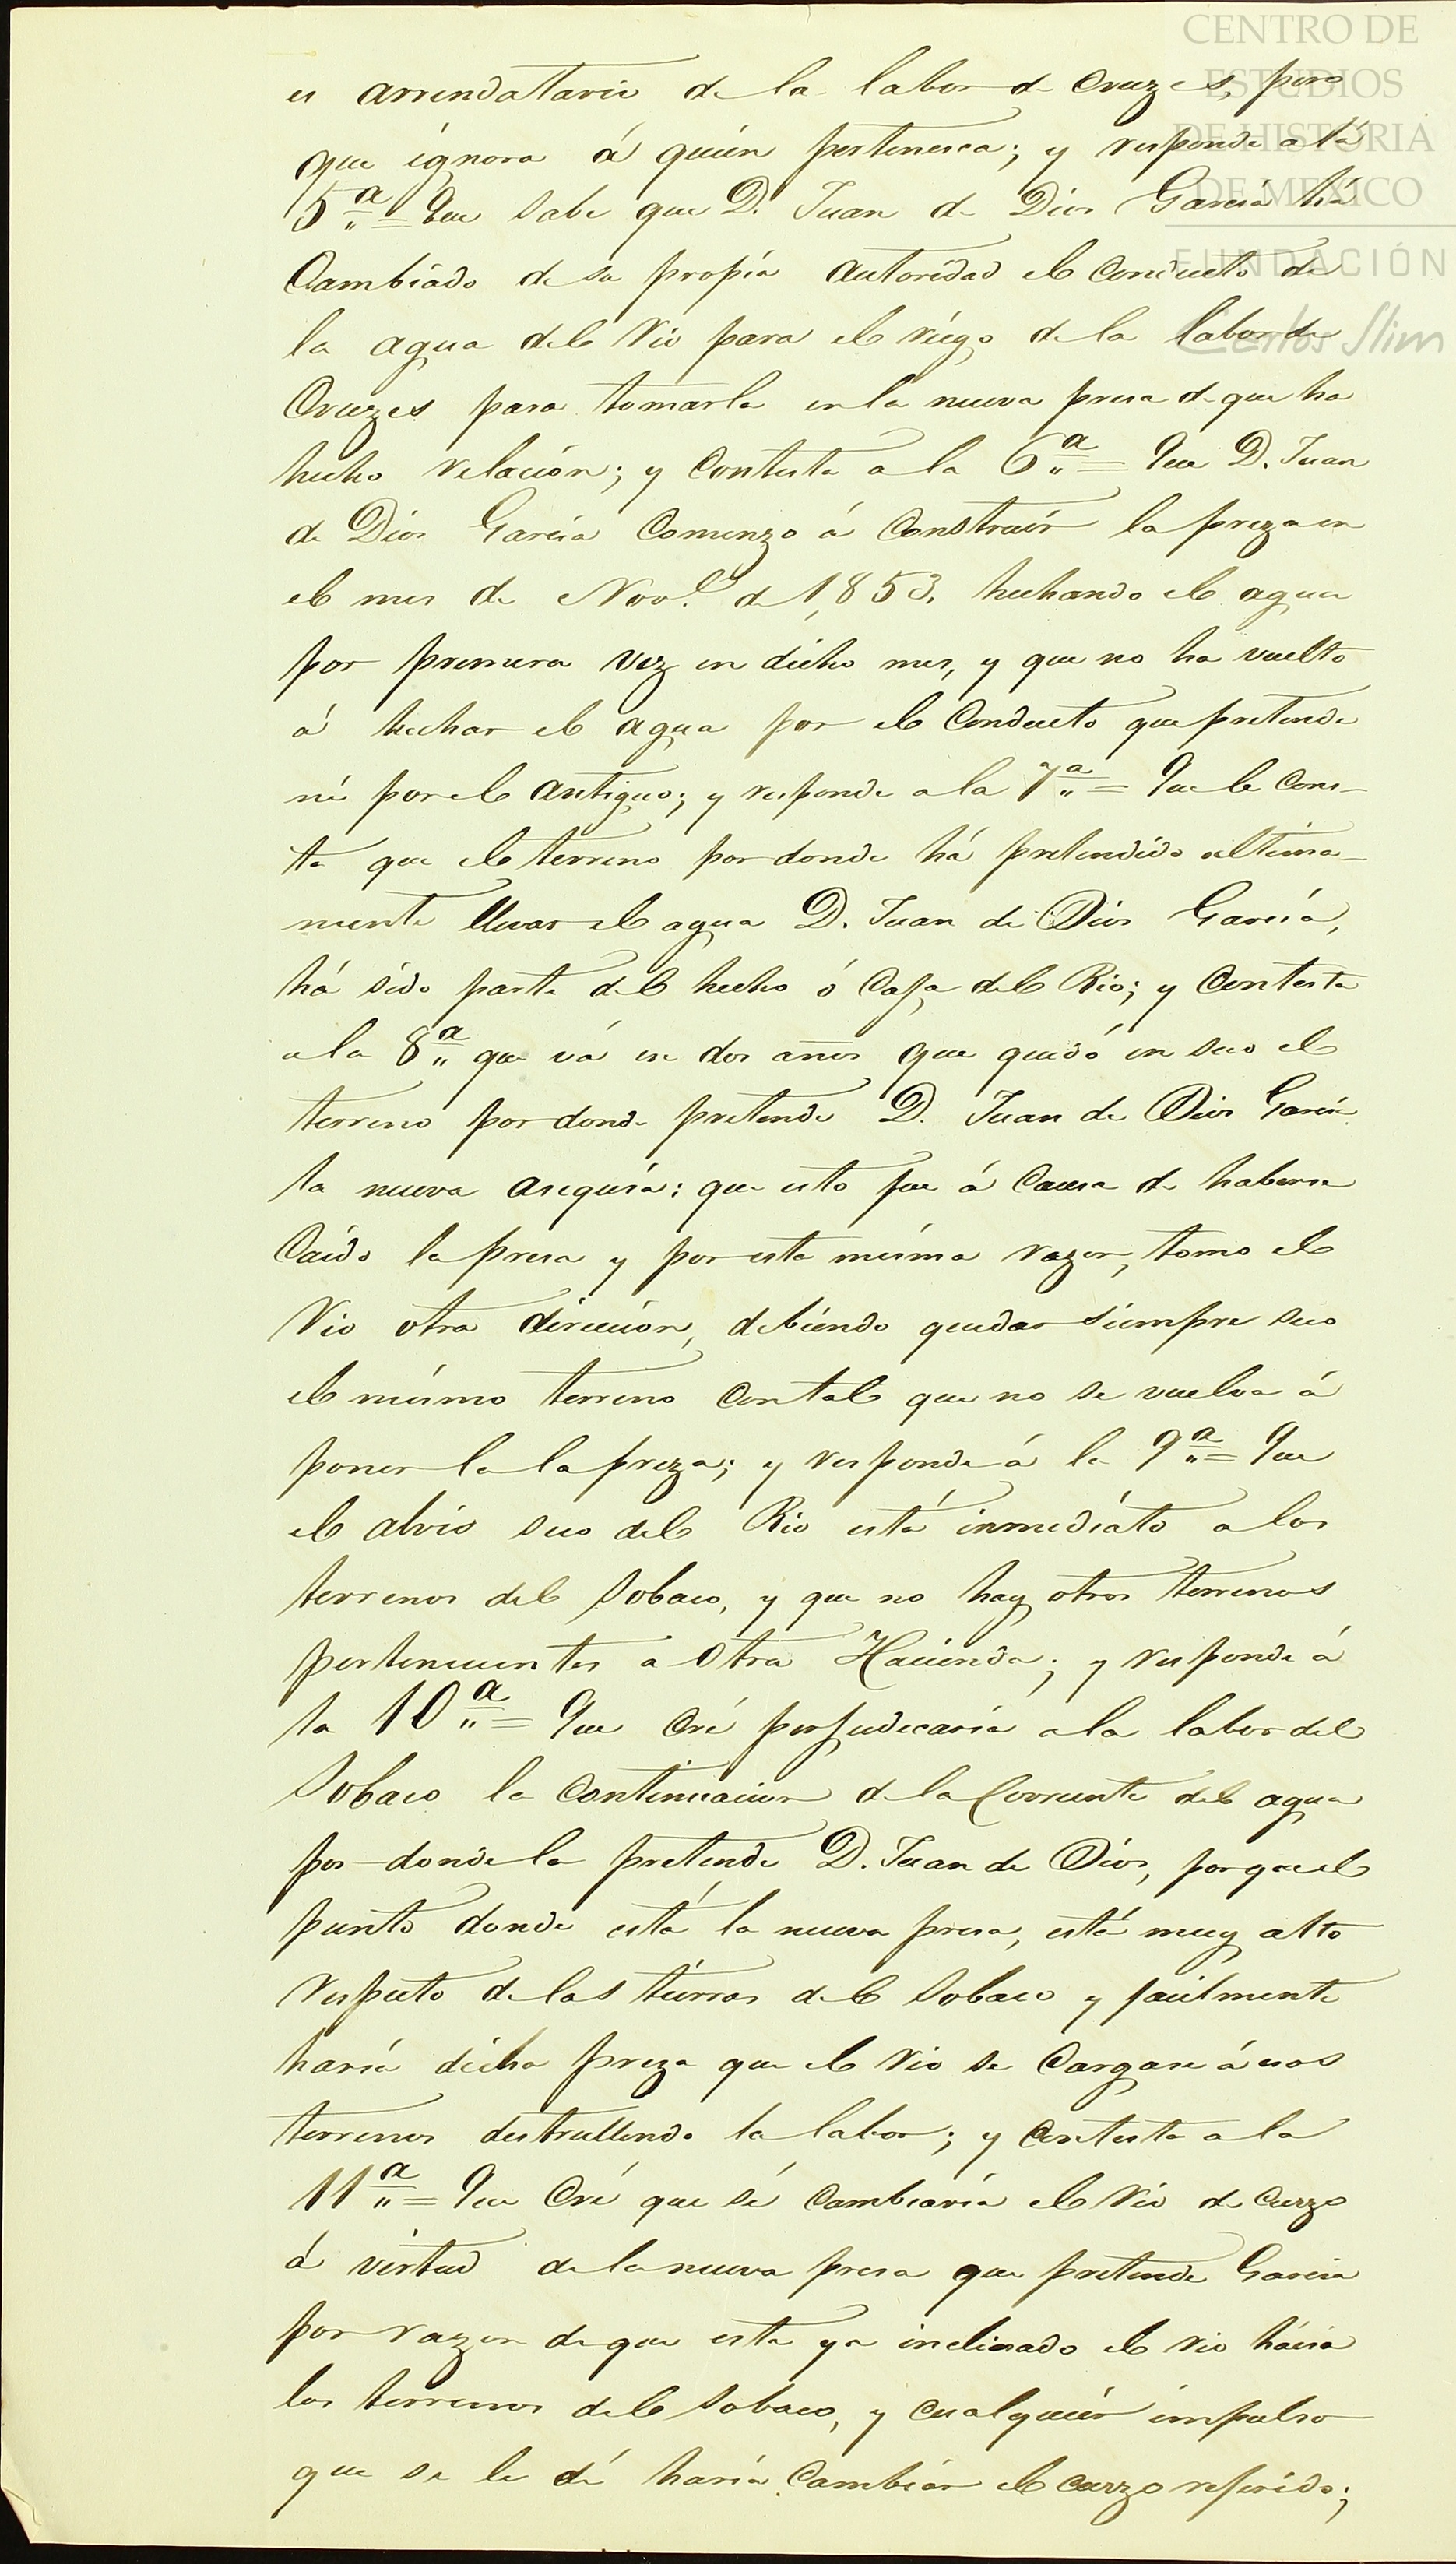 CENTRO DE
ESTUDIOS
DE HISTORIA
DE MEXICO
FUNDACIÓN
Carlos Slim
es arrendatario de la labor de Cruzes, pero
que ignora á quien pertenesca; y responde a la
5ª = Que sabe que D. Juan de Dios Garcia há
Cambiado de su propia autoridad el Conducto de
la agua del Rio para el riego de la labor de
Cruzes para tomarla en la nueva presa de que ha
hecho relacion; y Contesta a la 6ª = Que D. Juan
de Dios Garcia Comenzo á Construir la preza en
el mes de Nov.e de 1,853. hechando el agua
por primera vez en dicho mes, y que no ha vuelto
á hechar el agua por el Conducto que pretende
ni por el antiguo; y responde a la 7ª = Que le Cons-
ta que el terreno por donde há pretendido ultima-
mente llevar el agua D. Juan de Dios Garcia,
há sido parte del hecho ó Caja del Rio; y Contesta
a la 8ª que vá en dos años que quedó en seco el
terreno por donde pretende D. Juan de Dios Garcia
la nueva asequia: que esto fue á Causa de haberse
Caido la presa y por esta misma razon, tomo el
Rio otra direccion, debiendo quedar siempre seco
el mismo terreno Con tal que no se vuelva á
poner la la preza; y responde á la 9ª = Que
el alvio seco del Rio está inmediato a los
terrenos del Sobaco, y que no hay otros terrenos
pertenecientes a otra Hacienda; y responde á
la 10ª = Que Cré perjudicaria a la labor del
Sobaco la Continuacion de la Corriente del agua
por donde la pretende D. Juan de Dios, porque el
punto donde está la nueva presa, está muy alto
respecto de las tierras del Sobaco y facilmente
haria dicha preza que el rio se Cargase á esos
terrenos destrullendo la labor; y Contesta a la
11ª = Que Cré que sé Cambiaria el Rio de Curzo
á virtud de la nueva presa que pretende Garcia
por razon de que esta ya inclinado el rio hácia
los terrenos del Sobaco, y Cualquier impulso
que se le dé haria Cambiar el Curzo referido;